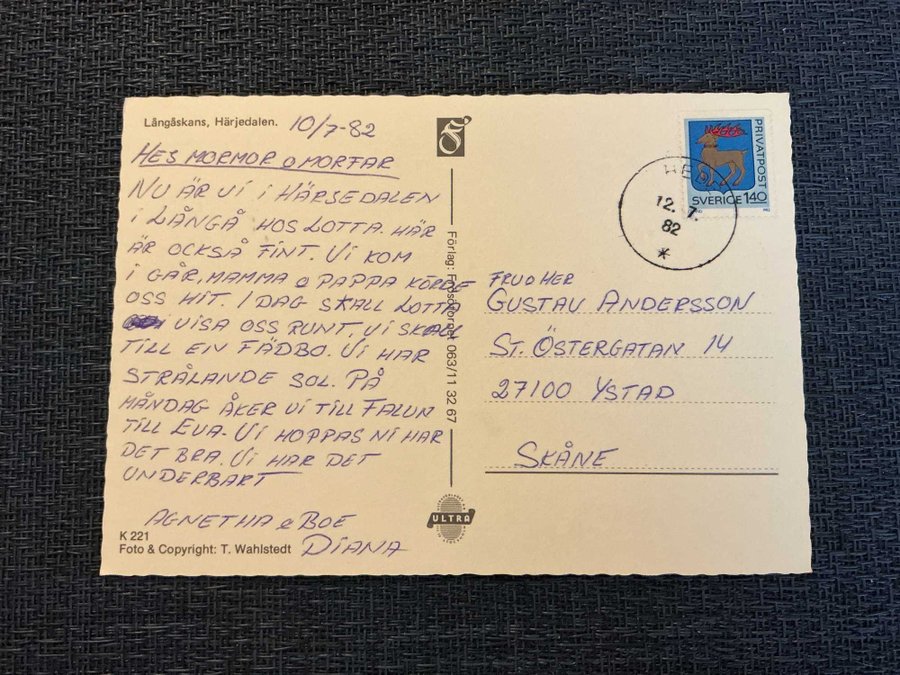 Långåskans, Härjedalen.
10/7-82
HEJ MORMOR o MORFAR
NU ÄR VI I HÄRJEDALEN
I LÅNGÅ HOS LOTTA. HÄR
ÄR OCKSÅ FINT. VI KOM
I GÅR, MAMMA o PAPPA KÖRDE
OSS HIT. I DAG SKALL LOTTA
VISA OSS RUNT. VI SKALL
TILL EN FÄDBO. VI HAR
STRÅLANDE SOL. PÅ
MÅNDAG ÅKER VI TILL FALUN
TILL EVA. VI HOPPAS NI HAR
DET BRA. VI HAR DET
UNDERBART
AGNETHA o BOE
DIANA
K 221
Foto & Copyright: T. Wahlstedt
Förlag: 063/11 32 67
ULTRA
PRIVATPOST
SVERIGE 140
12. 7.
82
*
FRU O HER
GUSTAV ANDERSSON
ST. ÖSTERGATAN 14
27100 YSTAD
SKÅNE